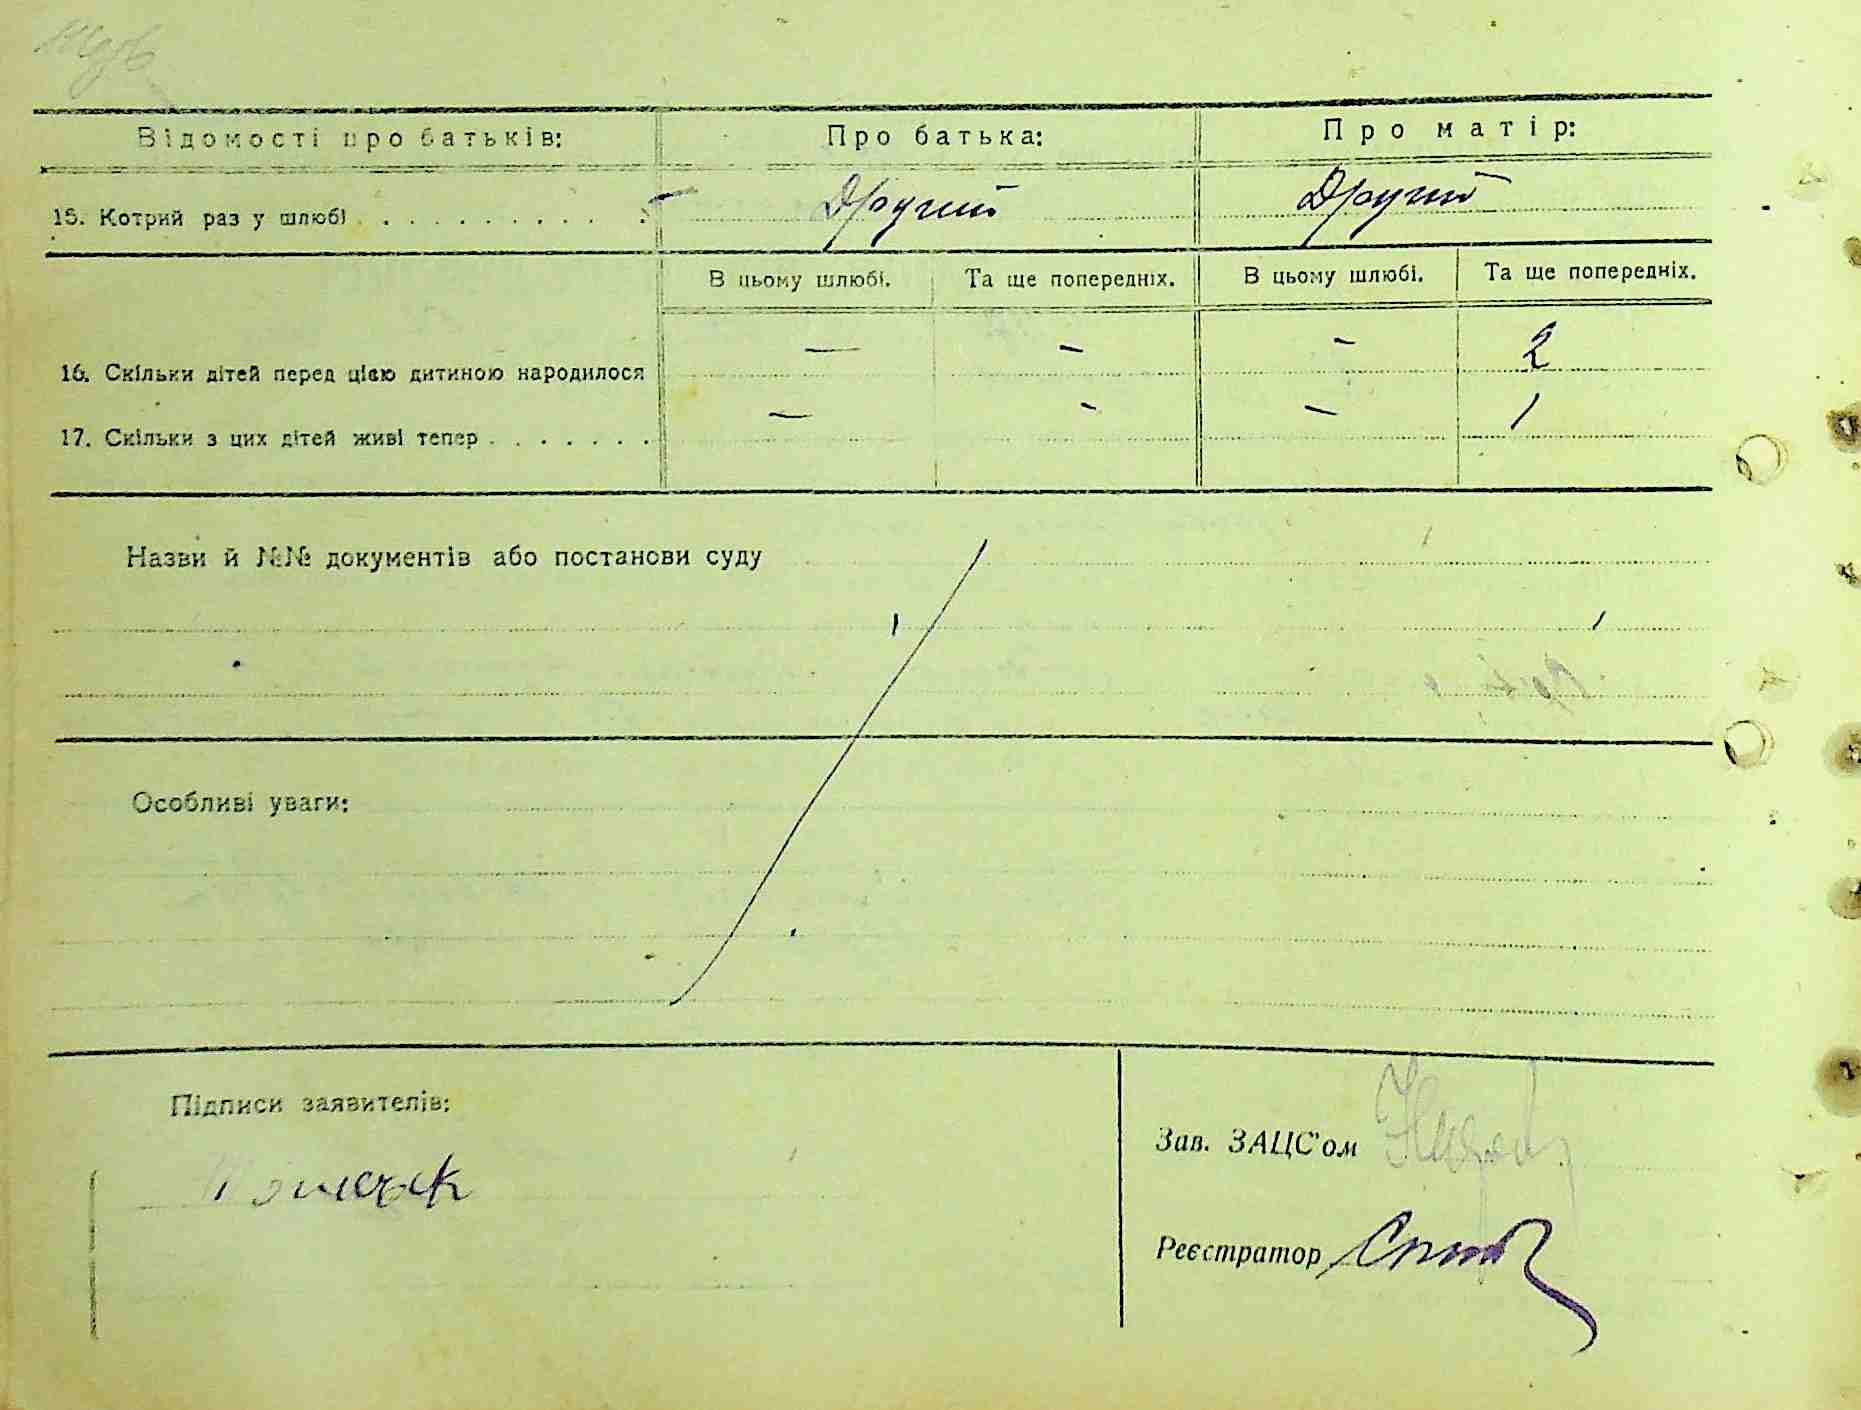 Відомості про батьків: Про батька: Про матір:
15. Котрий раз у шлюбі . . . . . . . . . . . Другий Другий
В цьому шлюбі. Та ще попередніх. В цьому шлюбі. Та ще попередніх.
16. Скільки дітей перед цією дитиною народилося — — — 2
17. Скільки з цих дітей живі тепер . . . . . . . — — — 1
Назви й №№ документів або постанови суду
Особливі уваги:
Підписи заявителів:
Зав. ЗАЦС'ом
Реєстратор